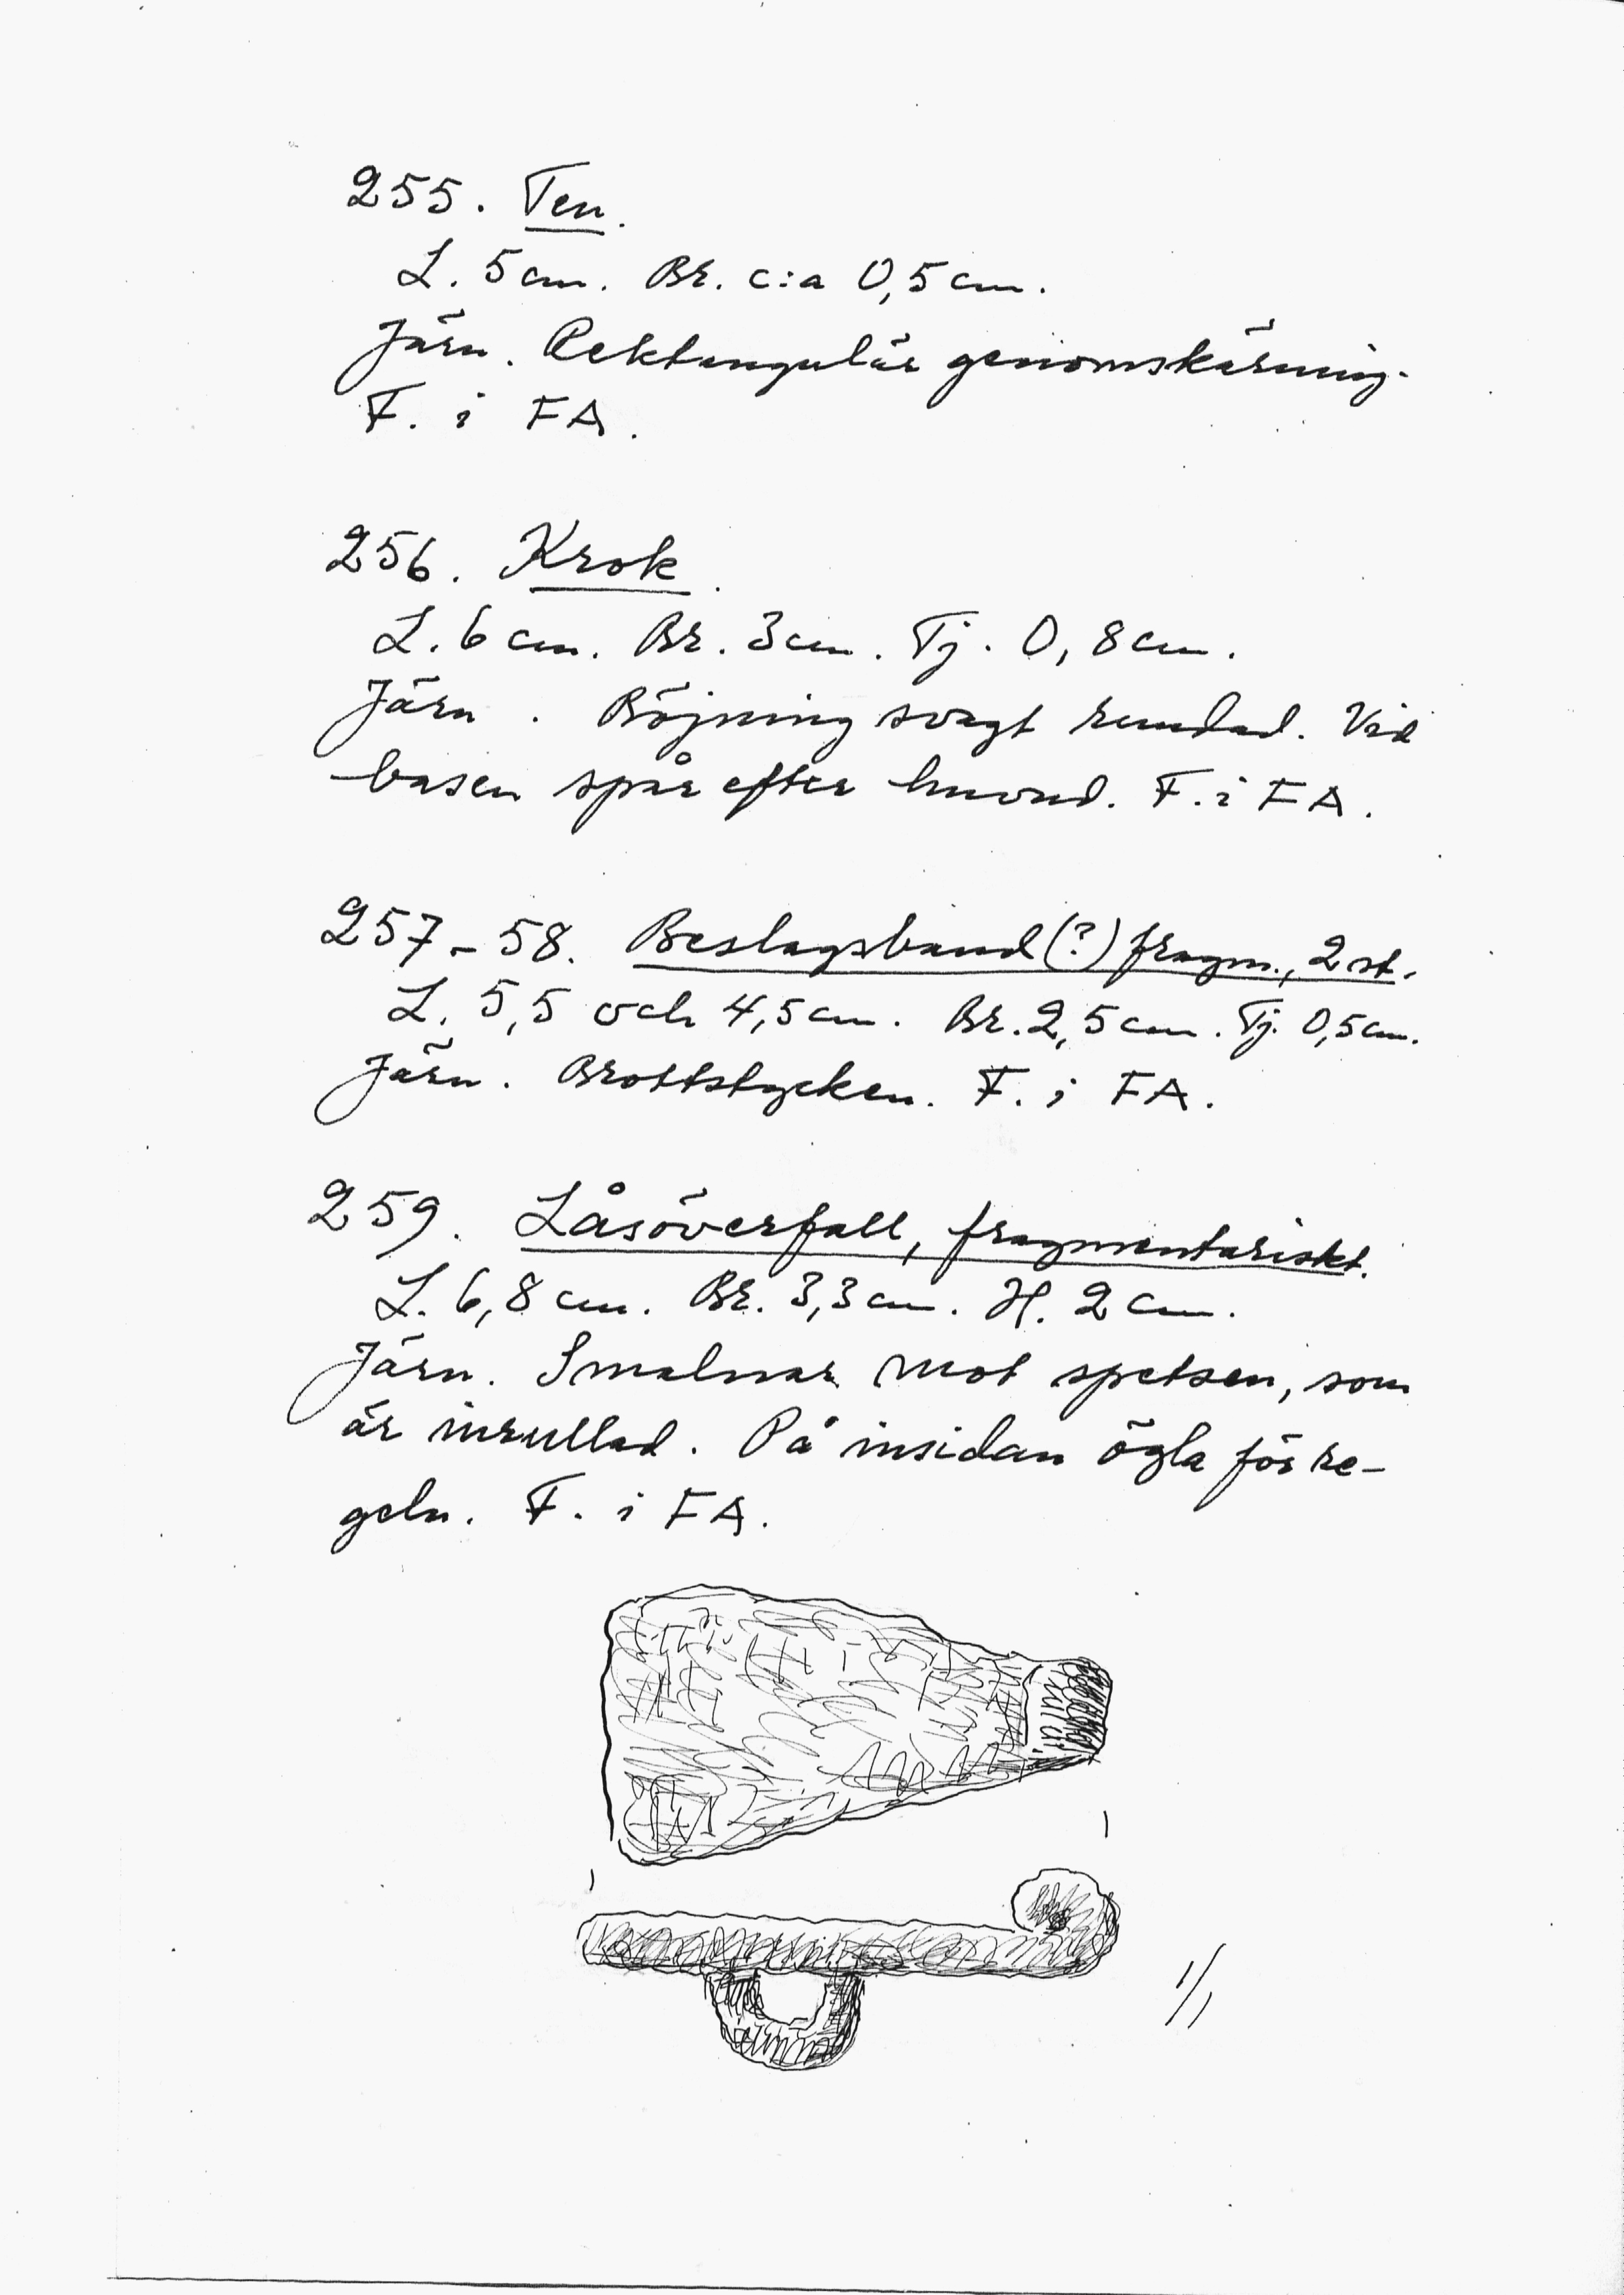 255. Ten.
L. 5 cm. Br. c:a 0,5 cm.
Järn. Rektangulär genomskärning.
F. i FA.
256. Krok.
L. 6 cm. Br. 3 cm. Tj. 0,8 cm.
Järn. Böjning svagt rundad. Vid
basen spår efter huvud. F. i FA.
257-58. Beslagsband(?) fragm., 2 st.
L. 5,5 och 4,5 cm. Br. 2,5 cm. Tj. 0,5 cm.
Järn. Brottstycken. F. i FA.
259. Låsöverfall, fragmentariskt.
L. 6,8 cm. Br. 3,3 cm. H. 2 cm.
Järn. Smalnar mot spetsen, som
är inrullad. På insidan ögla för re-
geln. F. i FA.
1/1